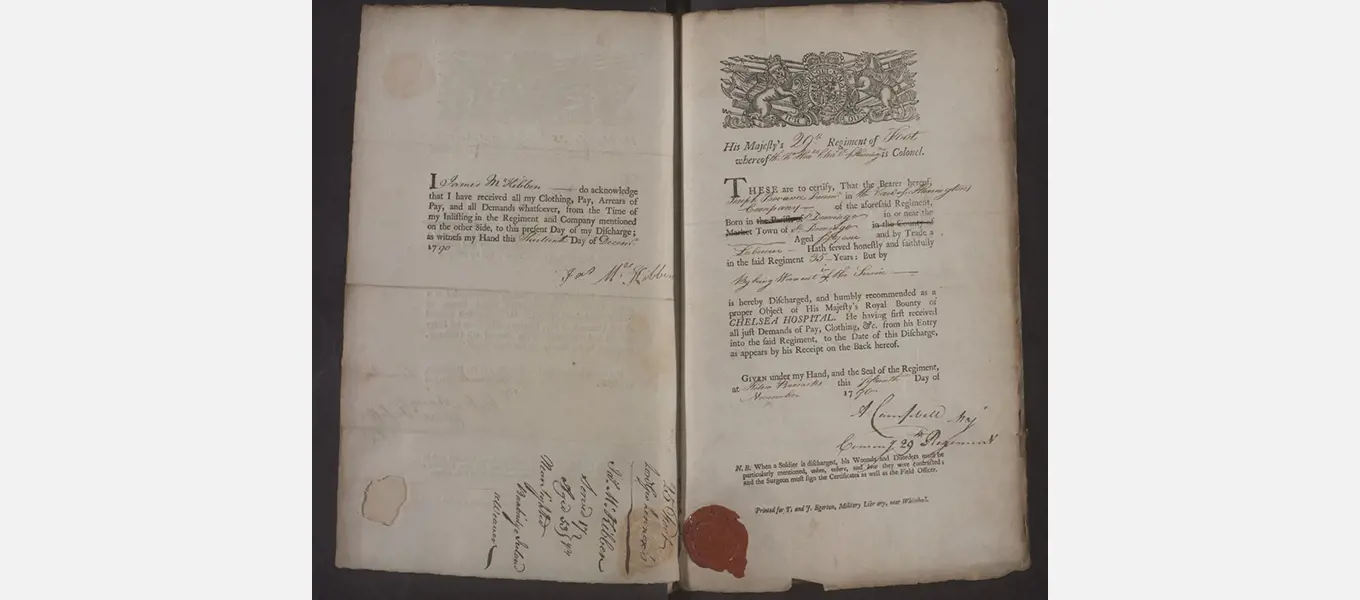 I James McKibben do acknowledge
that I have received all my Clothing, Pay, Arrears of
Pay, and all Demands whatsoever, from the Time of
my Inlisting in the Regiment and Company mentioned
on the other Side, to this present Day of my Discharge;
as witness my Hand this Thirteenth Day of Decemr
1790
Jas McKibben
35th Regt
Jas McKibben
Served 17
Aged 53
Banbridge Ireland
His Majesty's 29th Regiment of Foot
whereof is Colonel.
THESE are to certify, That the Bearer hereof,
Joseph in the Earl of Harrington's
Company of the aforesaid Regiment,
Born in the Parish of St Domingo in or near the
Market Town of St Domingo in the County of
Aged and by Trade a
Labourer Hath served honestly and faithfully
in the said Regiment 35 Years; But by
is hereby Discharged, and humbly recommended as a
proper Object of His Majesty's Royal Bounty of
CHELSEA HOSPITAL. He having first received
all just Demands of Pay, Clothing, &c. from his Entry
into the said Regiment, to the Date of this Discharge,
as appears by his Receipt on the Back hereof.
GIVEN under my Hand, and the Seal of the Regiment,
at Barracks this Day of
November 1790
A Campbell Maj
29th Regiment
N.B. When a Soldier is discharged, his Wounds and Disorders must be
particularly mentioned, when, where, and how they were contracted;
and the Surgeon must sign the Certificates as well as the Field Officer.
Printed for T. and J. Egerton, Military Library, near Whitehall.